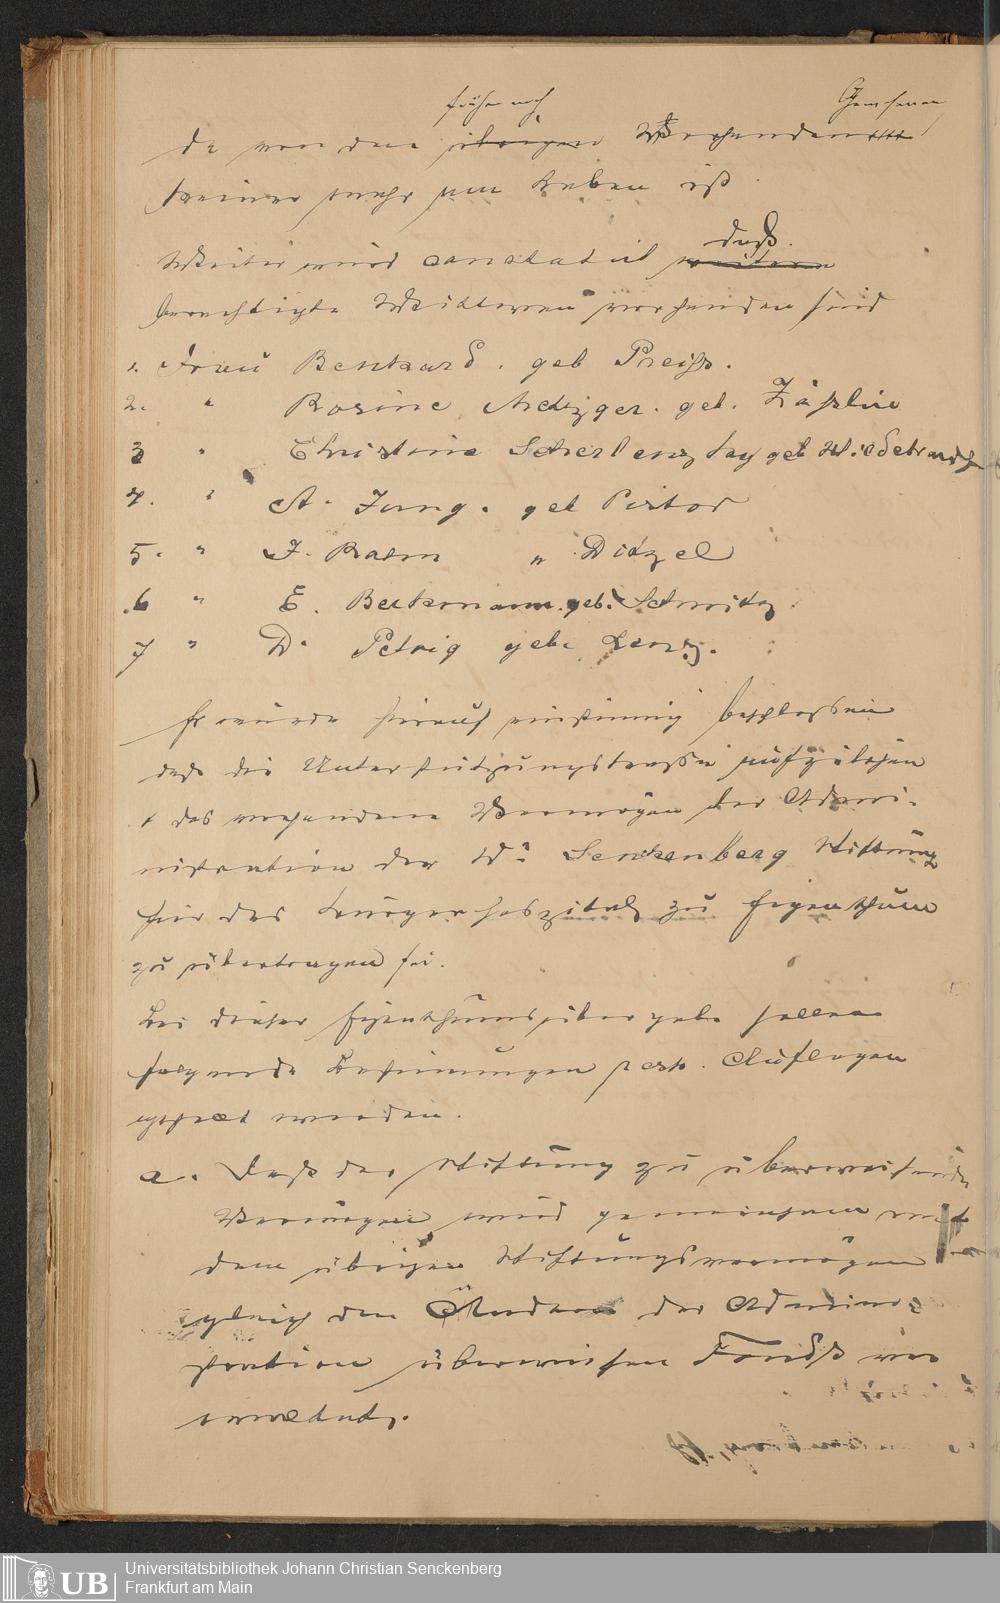 früher noch Genesenen
da von den übrigen Vorhandenen
keiner mehr am Leben ist
Weiter wird constatirt weitern daß
berechtigte Wittwen vorhanden sind
1. Frau Benkard. geb Preiss.
2. " Rosine Metzger. geb. Zäßlin
3 " Christine geb Hildebrandt
4. " A. Jung. geb Pistor
5. " J. Raem " Ditzel
6 " E. Beckmann. geb. Schmitz
7 " D. Petrig geb. Lenz.
Es wurde hierauf einstimmig beschlossen
daß die Unterstützungskasse aufzulösen
& das vorhandene Vermögen der Admi-
nistration der Dr Senckenberg Stiftung
für das Bürgerhospital zu Eigenthum
zu übertragen sei.
Bei dieser Eigenthumsübergabe sollen
folgende Auflagen
gestellt werden.
a. Daß das der Stiftung zu überweisende
Vermögen wird gemeinsam mit
dem übrigen Stiftungsvermögen
gleich den Anderen der Admini-
stration überwiesenen Fondß ver
waltet.
Universitätsbibliothek Johann Christian Senckenberg
UB Frankfurt am Main